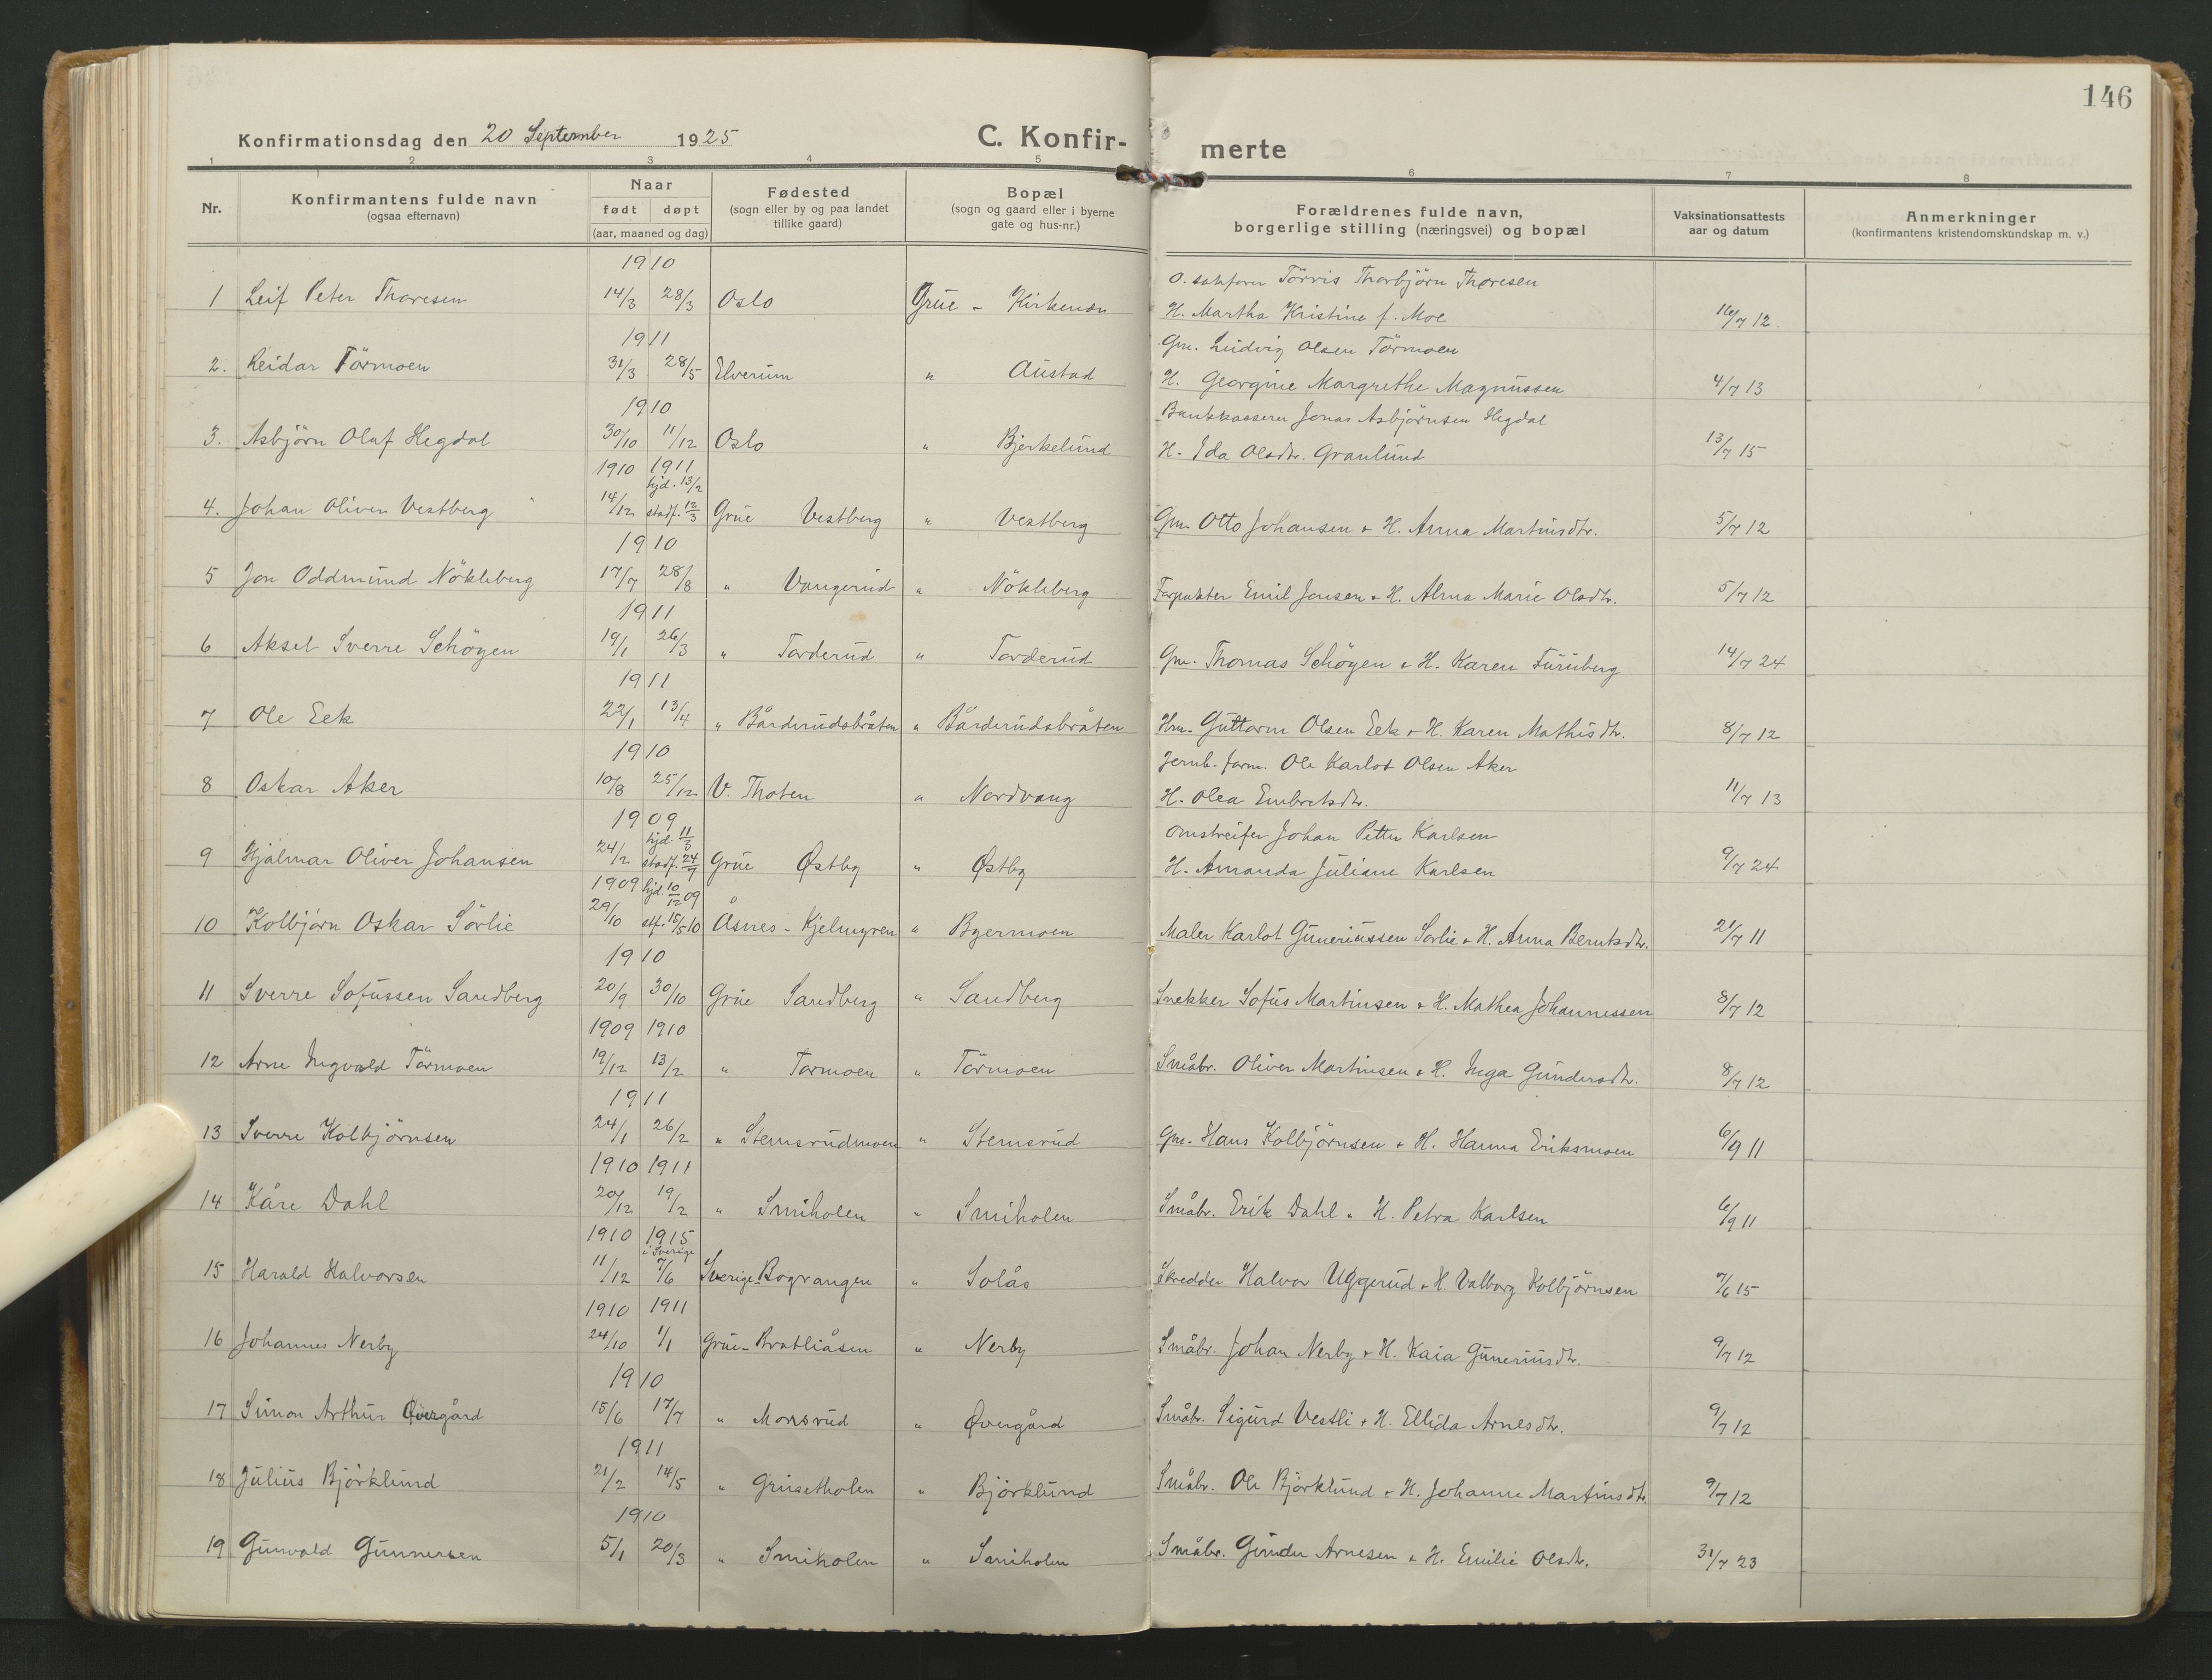 146
Konfirmationsdag den 20 September 1925
C. Konfir-
merte
1 2 3 4 5 6 7 8
Nr.
Konfirmantens fulde navn
(ogsaa efternavn)
Naar
født døpt
(aar, maaned og dag)
Fødested
(sogn eller by og paa landet
tillike gaard)
Bopæl
(sogn og gaard eller i byerne
gate og hus-nr.)
Forældrenes fulde navn,
borgerlige stilling (næringsvei) og bopæl
Vaksinationsattests
aar og datum
Anmerkninger
(konfirmantens kristendomskundskap m. v.)
1910
O. sakfører Törris Thorbjörn Thoresen
1 Leif Peter Thoresen 14/3 28/3 Oslo Grue - Kirkenær H. Martha Kristine f. Moe 16/7 12.
1911
Gm. Ludvig Olsen Törmoen
2. Reidar Törmoen 31/3 28/5 Elverum " Austad H. Georgine Margrethe Magnussen 4/7 13
1910
Bankkasserer Jonas Asbjörnsen Hegdal
3. Asbjörn Olaf Hegdal 30/10 11/12 Oslo " Bjerkelund H. Ida Olsdtr. Granlund 13/7 15
1910 1911
hjd. 13/2
4. Johan Oliver Vestberg 14/12 stadf. 12/3 Grue Vestberg " Vestberg Gm. Otto Johansen & H. Anna Martinsdtr. 5/7 12
1910
5 Jon Oddmund Nökleberg 17/7 28/8 " Vangerud " Nökleberg Forpakter Emil Jensen & H. Alma Marie Olsdtr. 5/7 12
1911
6 Aksel Sverre Schöyen 19/1 26/3 " Torderud " Torderud Gm. Thomas Schöyen & H. Karen Furuberg 14/7 24
1911
7 Ole Eek 22/1 13/4 " Bårderudsbråten " Bårderudsbråten Hm. Guttorm Olsen Eek & H. Karen Mathisdtr. 8/7 12
1910
Jernb. form. Ole Karlot Olsen Aker
8 Oskar Aker 10/8 25/12 V. Thoten " Nordvang H. Olea Embretsdtr. 11/7 13
1909
hjd. 11/3
Omstreifer Johan Petter Karlsen
9 Hjalmar Oliver Johansen 24/2 stadf. 24/7 Grue Østby " Østby H. Amanda Juliane Karlsen 9/7 24
1909 hjd. 10/12 09
10 Kolbjörn Oskar Sörlie 29/10 stf. 15/5 10 Åsnes - Kjelmyren " Byermoen Maler Karlot Guneriussen Sorlie & H. Anna Berntsdtr. 21/7 11
1910
11 Sverre Sofussen Sandberg 20/9 30/10 Grue Sandberg " Sandberg Snekker Sofus Martinsen & H. Mathea Johannessen 8/7 12
1909 1910
12 Arne Ingvald Törmoen 19/12 13/2 " Tormoen " Törmoen Småbr. Oliver Martinsen & H. Inga Gundersdtr. 8/7 12
1911
13 Sverre Kolbjörnsen 24/1 26/2 " Stemsrudmoen " Stemsrud Gm. Hans Kolbjörnsen & H. Hanna Eriksmoen 6/9 11
1910 1911
14 Kåre Dahl 20/12 19/2 " Smiholen " Smiholen Småbr. Erik Dahl & H. Petra Karlsen 6/9 11
1910 1915
i Sverige
15 Harald Halvorsen 11/12 7/6 Sverige-Bograngen " Solås Skredder Halvor Uggerud & H. Valborg Kolbjörnsen 7/6 15
1910 1911
16 Johannes Nerby 24/10 1/1 Grue-Bratliåsen " Nerby Småbr. Johan Nerby & H. Kaia Guneriusdtr. 9/7 12
1910
17 Simon Arthur Övergård 15/6 17/7 " Monsrud " Övergård Småbr. Sigurd Vestli & H. Ellida Arnesdtr. 9/7 12
1911
18 Julius Björklund 21/2 14/5 " Grusetholen " Björklund Småbr. Ole Björklund & H. Johanne Martinsdtr 9/7 12
1910
19 Gunvald Gunnersen 5/1 20/3 " Smiholen " Smiholen Småbr. Gunder Arnesen & H. Emilie Olsdtr. 31/7 23